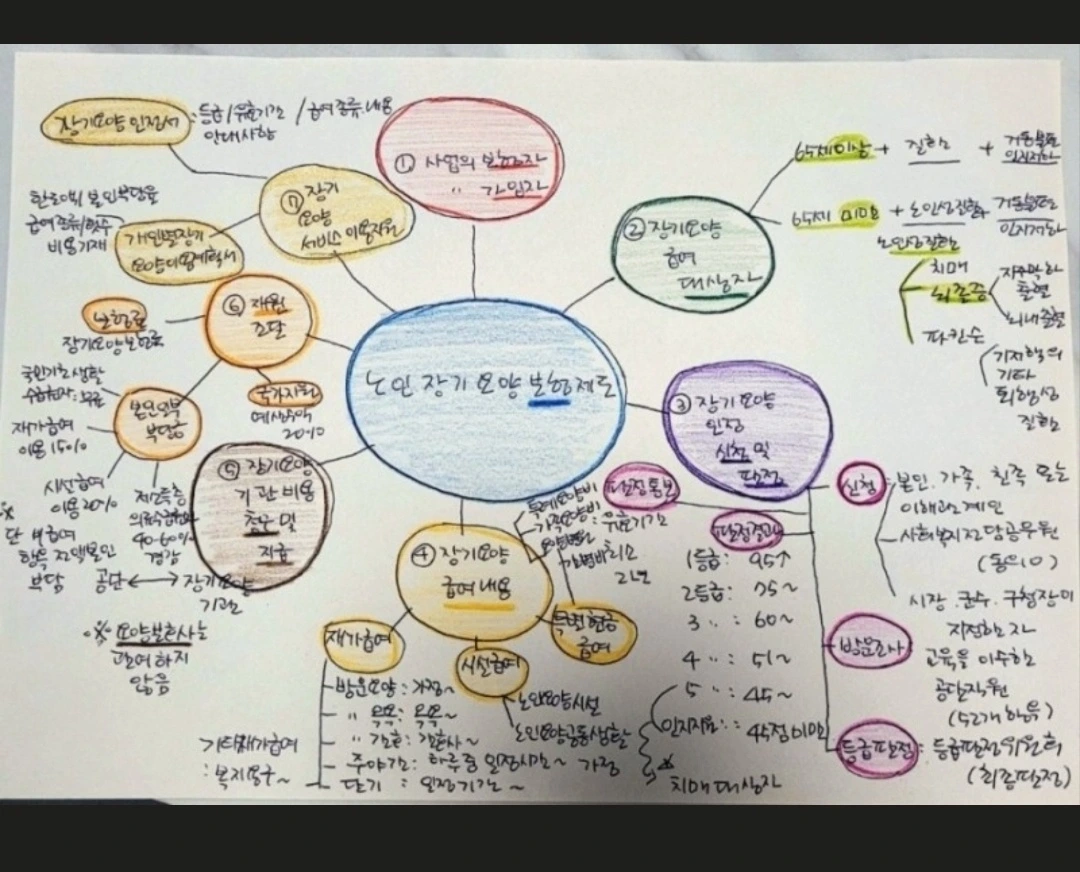 노인장기요양보험제도
① 사업의 보험자
" 가입자
② 장기요양
급여
대상자
65세이상 + 질환 + 거동불편
인지저하
65세 미만 + 노인성질환 + 거동불편
인지저하
노인성질환
치매
뇌졸중
지주막하
출혈
뇌내출혈
파킨슨
기저핵의
기타
퇴행성
질환
③ 장기요양
인정
신청 및
판정
신청 : 본인, 가족, 친족 또는
이해관계인
사회복지전담공무원
(동의O)
시장·군수·구청장이
지정한 자
방문조사
교육을 이수한
공단직원
(52개 항목)
등급판정 : 등급판정위원회
(최종판정)
판정통보
: 유효기간
최소
2년
판정결과
1등급: 95↑
2등급: 75~
3 〃: 60~
4 〃: 51~
5 〃: 45~
인지지원: 45점미만
치매대상자
④ 장기요양
급여내용
재가급여
방문요양: 가정~
〃 목욕: 목욕~
〃 간호: 간호사~
주야간: 하루 중 일정시간~
단기: 일정기간~
기타재가급여
: 복지용구~
시설급여
노인요양시설
노인요양공동생활
가정
특별현금
급여
특례요양비
가족요양비
요양병원
간병비
⑤ 장기요양
기관 비용
청구 및
지급
공단 ↔ 장기요양
기관
※ 요양보호사는
관여하지
않음
⑥ 재원
조달
보험료
장기요양보험료
국가지원
예상수익
20%
본인일부
부담금
국민기초생활
수급권자: 무료
재가급여
이용 15%
시설급여
이용 20%
저소득층
의료수급권자
40-60%
경감
※
단 비급여
항목 전액본인
부담
⑦ 장기
요양
서비스 이용지원
장기요양인정서 : 등급/유효기간 /급여종류·내용
안내사항
개인별장기
요양이용계획서
한도액/본인부담율
급여종류/횟수
비용기재